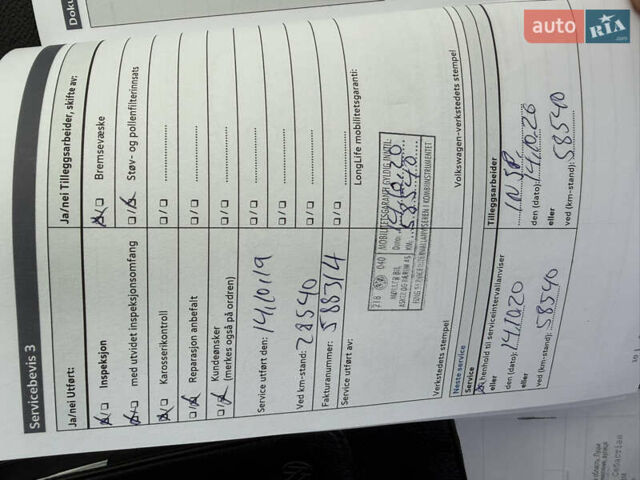 Servicebevis 3
Ja/nei Utført:
Ja/nei Tilleggsarbeider, skifte av:
Inspeksjon
Bremsevæske
med utvidet inspeksjonsomfang
Støv- og pollenfilterinnsats
Karosserikontroll
Reparasjon anbefalt
Kundeønsker
(merkes også på ordren)
Service utført den: 14/10/19
Ved km-stand: 28540
Fakturanummer: 588314
Service utført av:
LongLife mobilitetsgaranti:
218 040
MØLLER BIL
MOBILITETSGARANTI GYLDIG INNTIL
Dato: 14.10.20
KM: 58540
Verkstedets stempel
Volkswagen-verkstedets stempel
Neste service
Service
I henhold til serviceintervallanviser
eller
den (dato): 14.10.20
eller
ved (km-stand): 58540
Tilleggsarbeider
INSP.
den (dato): 14.10.20
eller
ved (km-stand): 58540
auto RIA.com